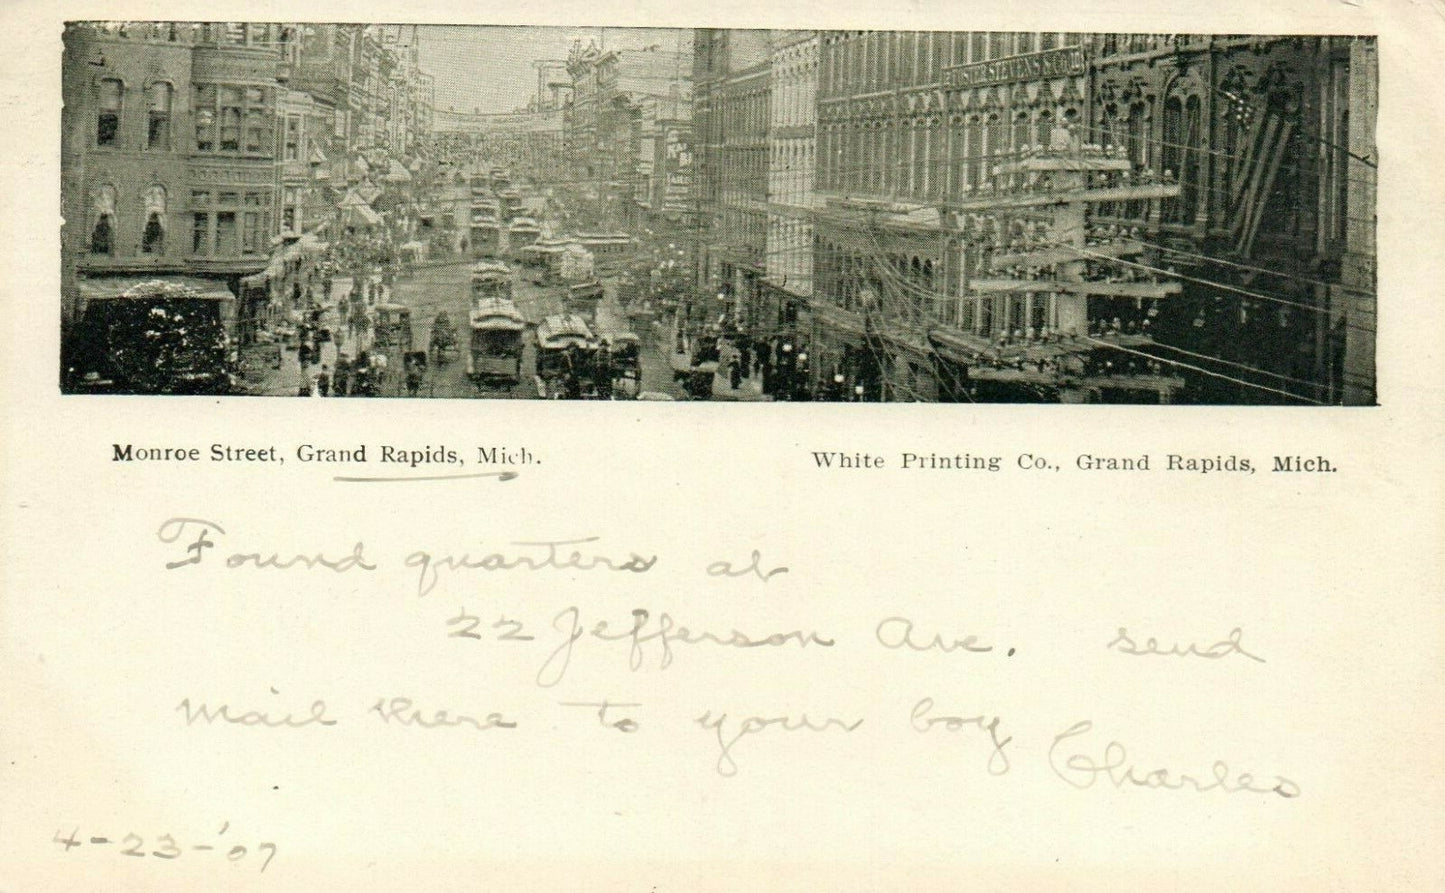 FOSTER STEVENS & CO.
Monroe Street, Grand Rapids, Mich.
White Printing Co., Grand Rapids, Mich.
Found quarters at
22 Jefferson Ave. send
mail there to your boy
Charles
4-23-'07